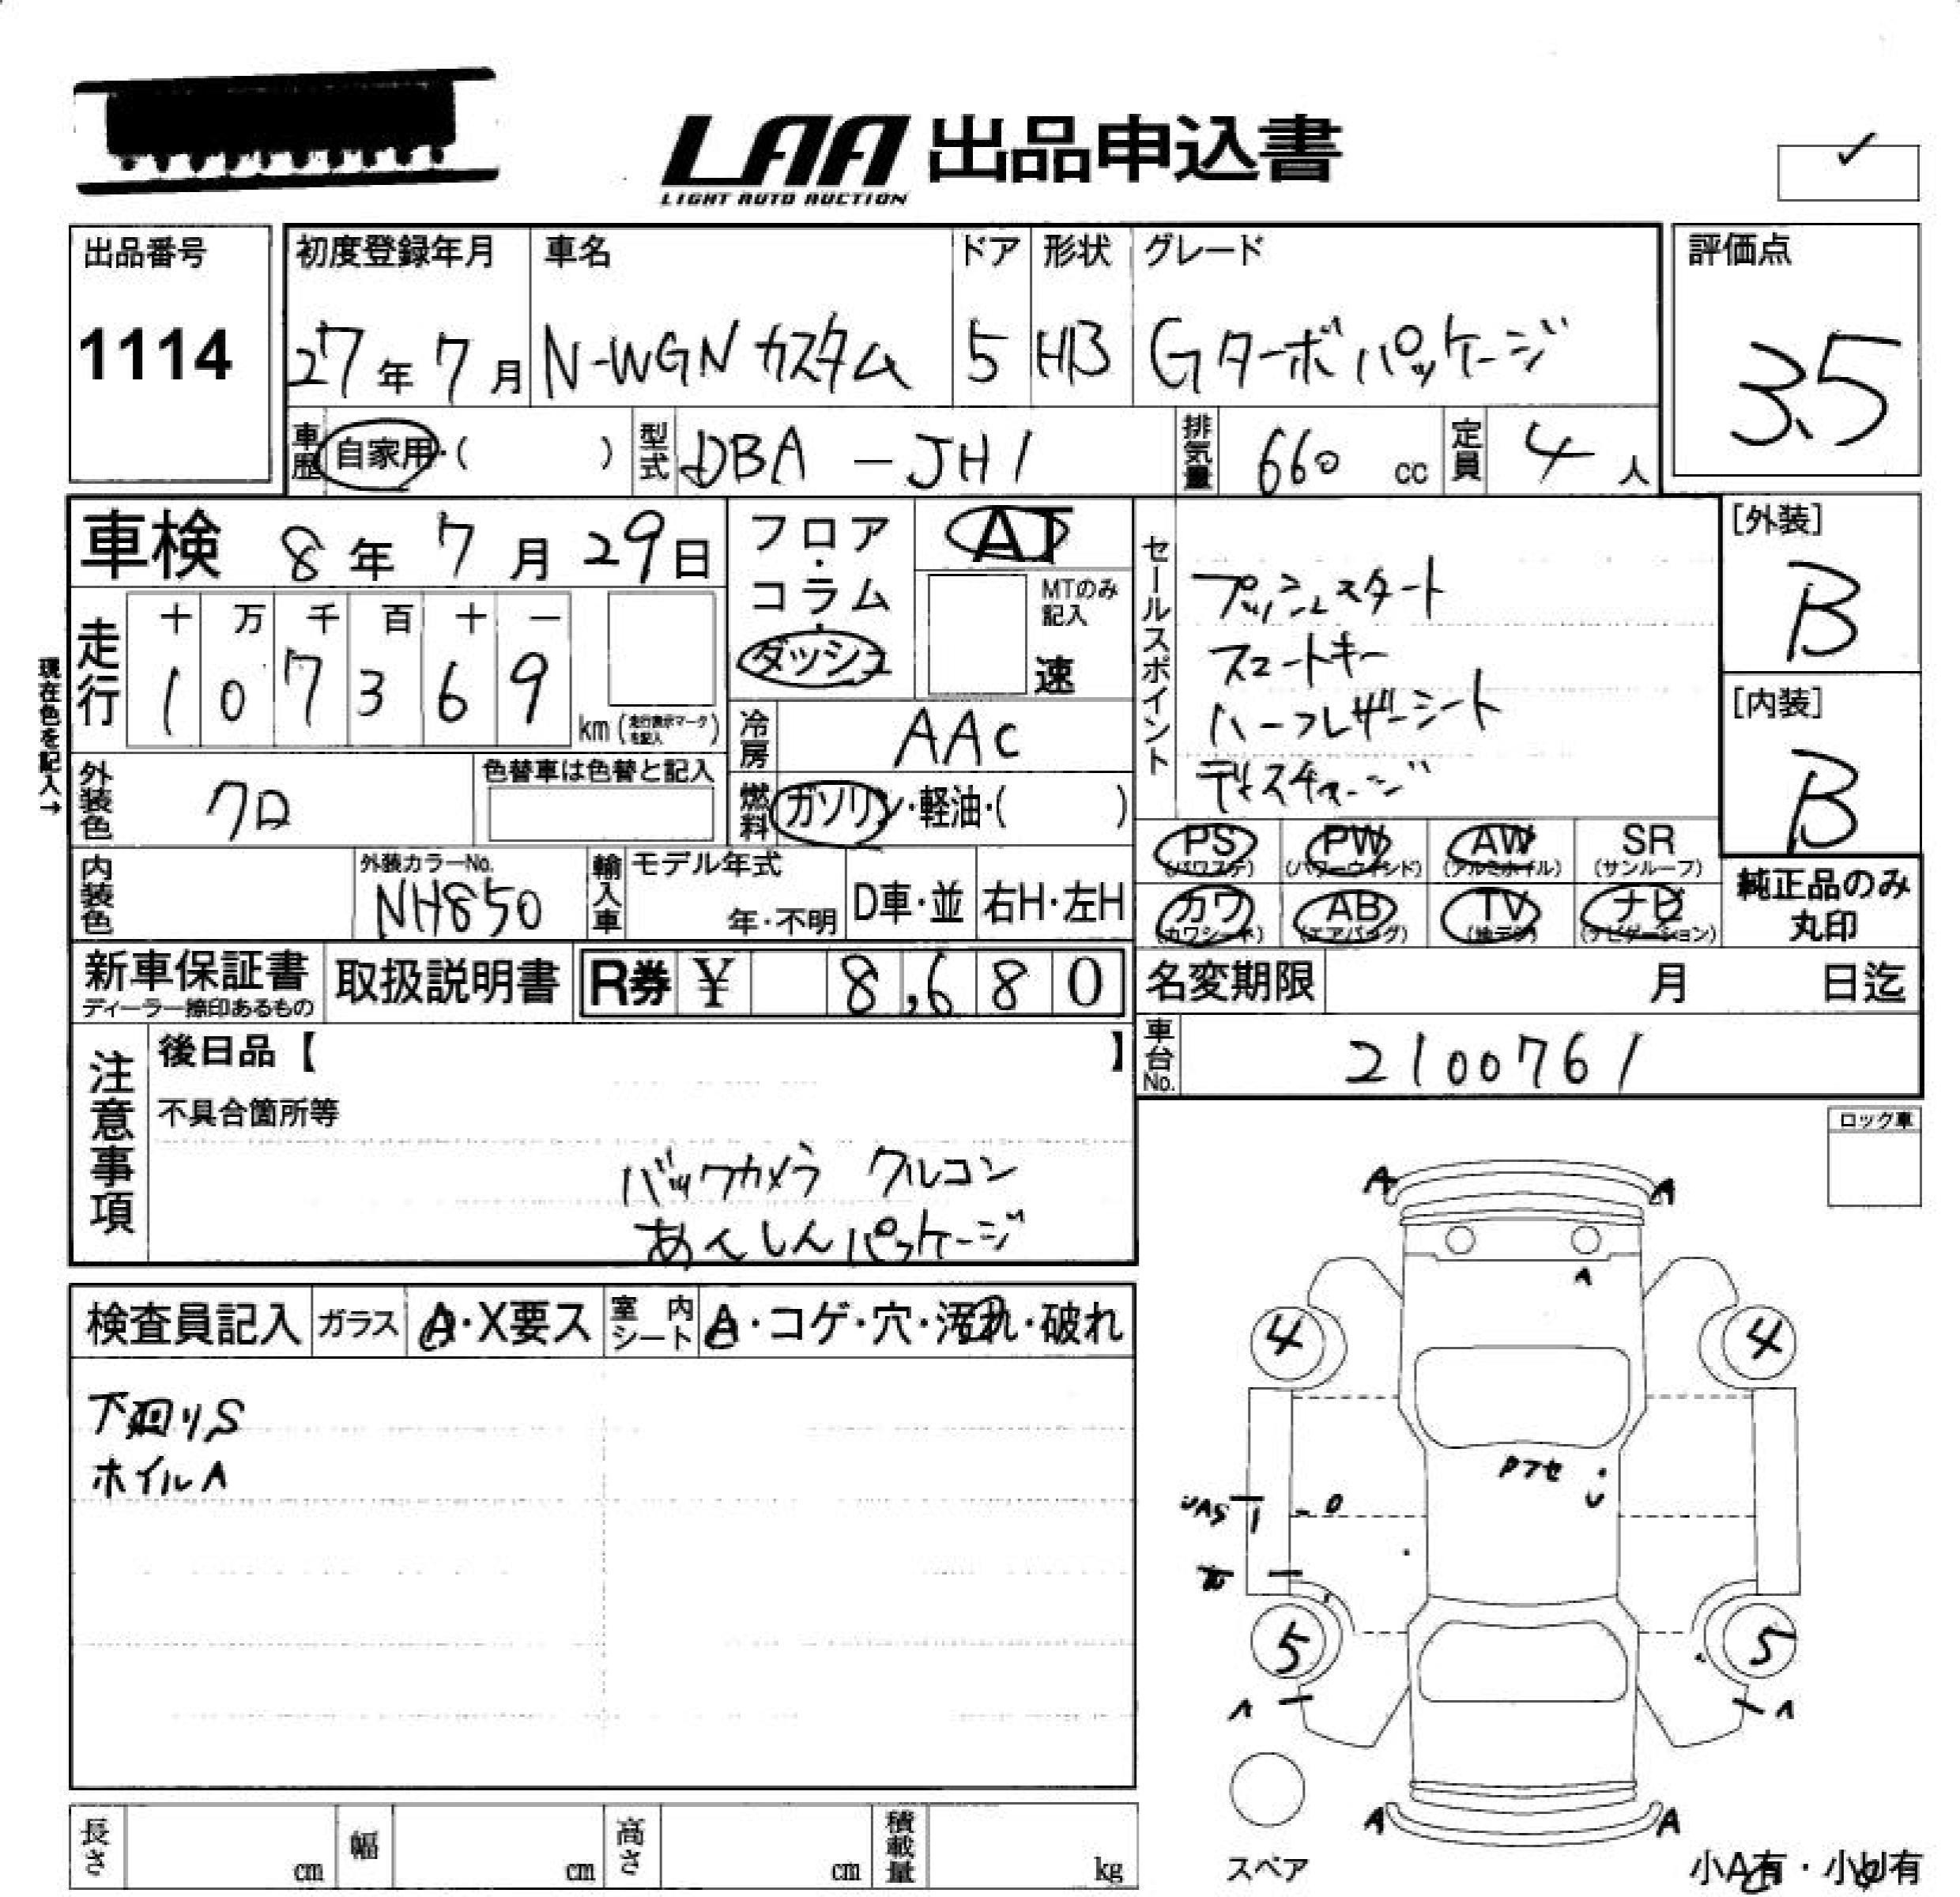 LAA 出品申込書
LIGHT AUTO AUCTION
✓
出品番号
1114
初度登録年月
27年 7月
車名
N-WGN カスタム
ドア
5
形状
HB
グレード
Gターボ パッケージ
評価点
3.5
車歴 自家用・( )
型式 DBA - JH1
排気量 660 cc
定員 4 人
車検 8年 7月 29日
フロア・コラム・ダッシュ
AT
MTのみ記入
速
現在色を記入→
走行
十 万 千 百 十 一
1 0 7 3 6 9
km (走行表示マークを記入)
冷房 AAC
外装色 クロ
色替車は色替と記入
燃料 ガソリン・軽油・( )
内装色
外装カラーNo.
NH850
輸入車
モデル年式
年・不明
D車・並
右H・左H
セールスポイント
プッシュスタート
スマートキー
ハーフレザーシート
ディスチャージ
[外装]
B
[内装]
B
PS (パワステ)
PW (パワーウインド)
AW (アルミホイル)
SR (サンルーフ)
カワ (カワシート)
AB (エアバッグ)
TV (地デジ)
ナビ (ナビゲーション)
純正品のみ
丸印
新車保証書
ディーラー捺印あるもの
取扱説明書
R券 ¥ 8,680
名変期限 月 日迄
車台No. 2100761
注意事項
後日品【 】
不具合箇所等
バックカメラ クルコン
あんしんパッケージ
ロック車
検査員記入
ガラス A・X要ス
室内シート A・コゲ・穴・汚れ・破れ
下廻りS
ホイルA
A A
A
4 4
Pアセ
U
UAS
5 5
A A
A A
スペア
小A有・小U有
長さ cm
幅 cm
高さ cm
積載量 kg